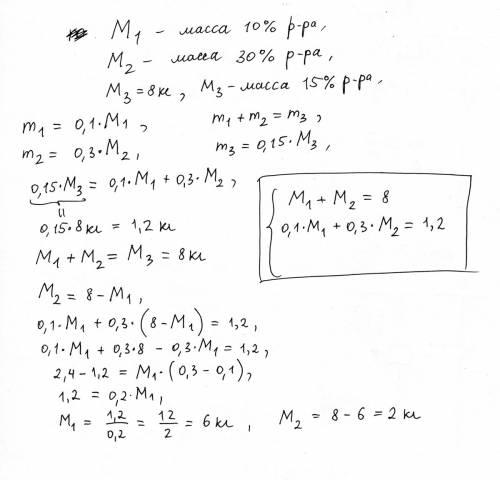 M₁ – масса 10% р-ра,
M₂ – масса 30% р-ра,
M₃ = 8 кг, M₃ – масса 15% р-ра,
m₁ = 0,1·M₁, m₁ + m₂ = m₃,
m₂ = 0,3·M₂, m₃ = 0,15·M₃,
0,15·M₃ = 0,1·M₁ + 0,3·M₂,
0,15·8 кг = 1,2 кг
M₁ + M₂ = M₃ = 8 кг
M₁ + M₂ = 8
0,1·M₁ + 0,3·M₂ = 1,2
M₂ = 8 – M₁,
0,1·M₁ + 0,3·(8 – M₁) = 1,2,
0,1·M₁ + 0,3·8 – 0,3·M₁ = 1,2,
2,4 – 1,2 = M₁·(0,3 – 0,1),
1,2 = 0,2·M₁,
M₁ = 1,2/0,2 = 12/2 = 6 кг, M₂ = 8 – 6 = 2 кг